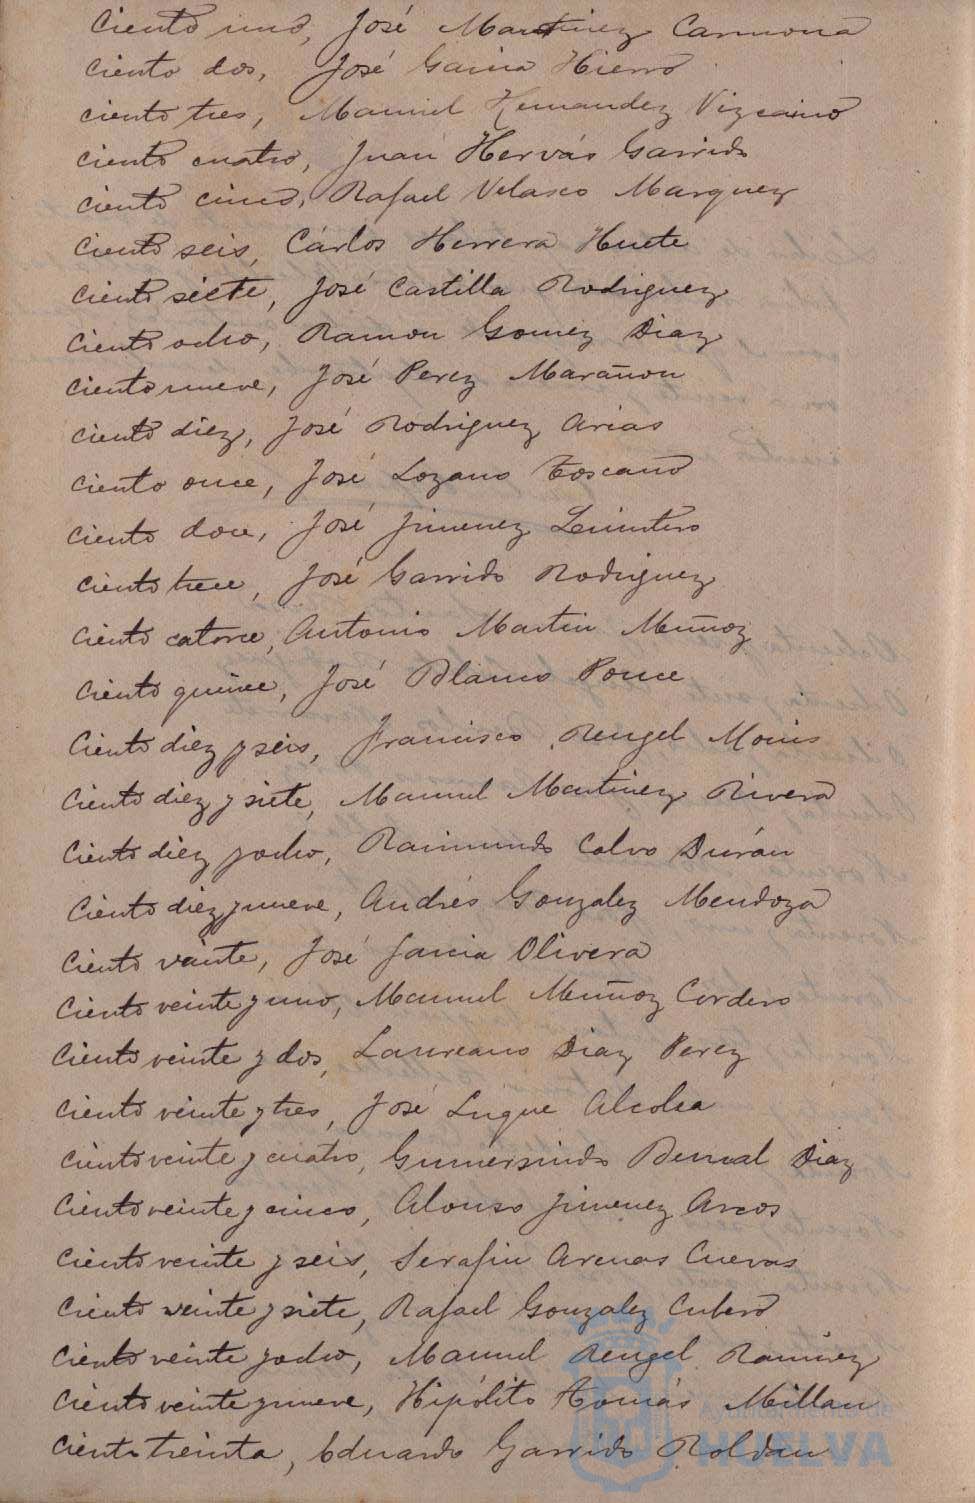 Ciento uno, José Martinez Carmona
Ciento dos, José Garcia Hierro
Ciento tres, Manuel Hernandez Vizcaino
Ciento cuatro, Juan Hervás Garrido
Ciento cinco, Rafael Velasco Marquez
Ciento seis, Cárlos Herrera Huete
Ciento siete, José Castilla Rodriguez
Ciento ocho, Ramon Gomez Diaz
Ciento nueve, José Perez Marañon
Ciento diez, José Rodriguez Arias
Ciento once, José Lozano Toscano
Ciento doce, José Jimenez Quintero
Ciento trece, José Garrido Rodriguez
Ciento catorce, Antonio Martin Muñoz
Ciento quince, José Blanco Ponce
Ciento diez y seis, Francisco Rengel
Ciento diez y siete, Manuel Martinez Rivera
Ciento diez y ocho, Raimundo Calvo Durán
Ciento diez y nueve, Andrés Gonzalez Mendoza
Ciento veinte, José Garcia Olivera
Ciento veinte y uno, Manuel Muñoz Cordero
Ciento veinte y dos, Laureano Diaz Perez
Ciento veinte y tres, José Luque Alcolea
Ciento veinte y cuatro, Gumersindo Bernal Diaz
Ciento veinte y cinco, Alonso Jimenez Arcos
Ciento veinte y seis, Serafin Arenas Cuevas
Ciento veinte y siete, Rafael Gonzalez Cubero
Ciento veinte y ocho, Manuel Rengel Ramirez
Ciento veinte y nueve, Hipólito Tomás Millan
Ciento treinta, Eduardo Garrido Roldan
Ayuntamiento de
HUELVA